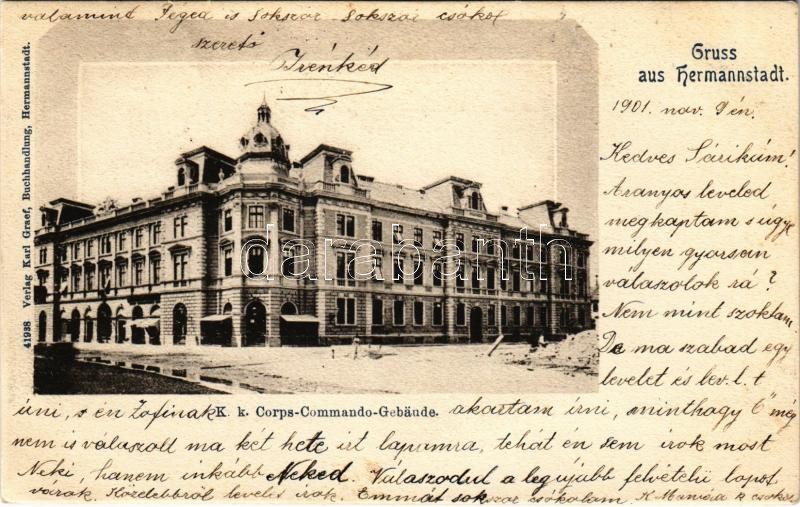 valamint Téged is sokszor sokszor csókol
szerető
Irénkéd
Gruss
aus Hermannstadt.
1901. nov. 9 én.
Kedves Sárikám!
Aranyos leveled
megkaptam s úgye
milyen gyorsan
válaszolok rá?
Nem mint szoktam
De ma szabad egy
levelet és lev. l. t
írni, s én Zofinak
K. k. Corps-Commando-Gebäude.
akartam írni, minthogy ő még
nem is válaszolt ma két hete írt lapomra, tehát én sem írok most
Neki, hanem inkább Neked. Válaszodul a legújabb felvételű lapot
várok. Közelebbről levelet írok. Emmát sokszor csókolom. K. Mamára k. csókol
41938 Verlag Karl Graef, Buchhandlung, Hermannstadt.
darabanth.com